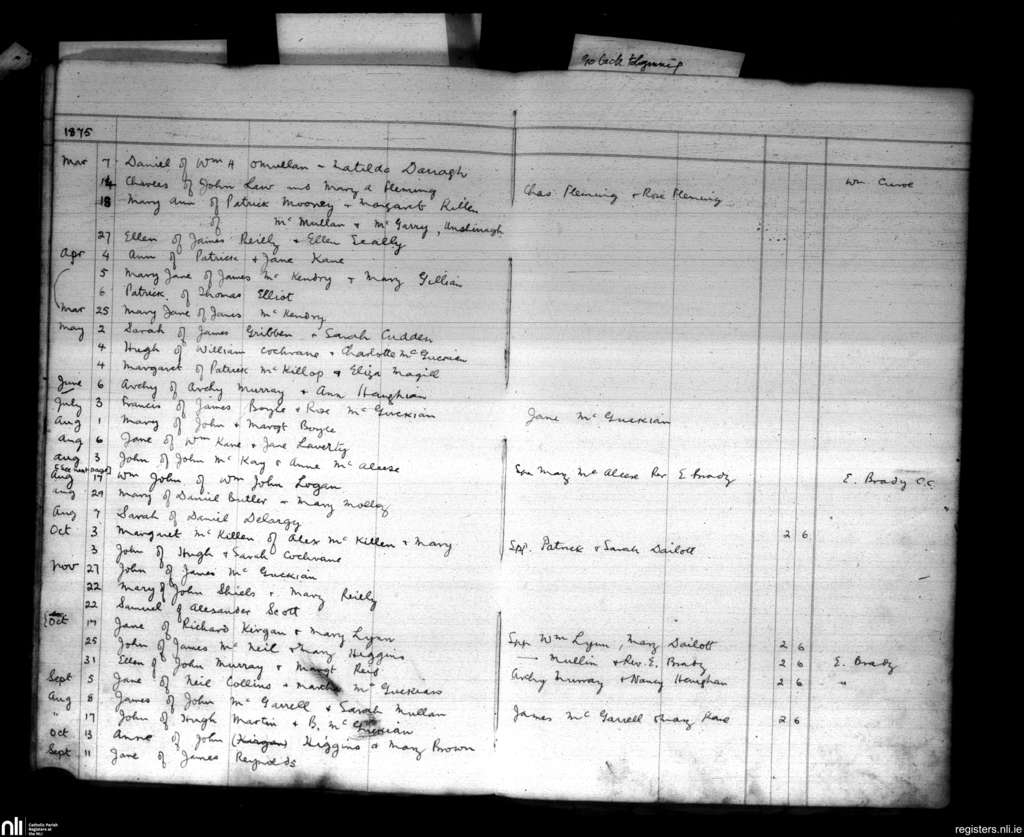 Go back to beginning
1875
Mar 7 Daniel of Wm A OMullan + Matilda Darragh Wm Curoe
14 Charles of John Law and Mary A Fleming Chas Fleming + Rose Fleming
18 Mary Ann of Patrick Mooney + Margaret Killen
of McMullan + McGarry, Unshinagh
27 Ellen of James Reilly + Ellen Scally
Apr 4 Ann of Patrick + Jane Kane
5 Mary Jane of James McKendry + Mary Gillian
6 Patrick of Thomas Elliot
Mar 25 Mary Jane of James McKendry
May 2 Sarah of James Gribben + Sarah Cudden
4 Hugh of William Cochrane + Charlotte McGuckian
4 Margaret of Patrick McKillop + Eliza Magill
June 6 Archy of Archy Murray + Ann Heughian
July 3 Francis of James Boyle + Rose McGuckian Jane McGuckian
Aug 1 Mary of John + Margt Boyle
Aug 6 Jane of Wm Kane + Jane Laverty
Aug 3 John of John McKay + Anne McAleese Spr Mary McAleese Rev E Brady E. Brady C.C.
[See next page]
Aug 17 Wm John of Wm John Logan
Aug 29 Mary of Daniel Butler + Mary Molloy
Aug 7 Sarah of Daniel Delargy
Oct 3 Margaret McKillen of Alex McKillen + Mary 2 6
3 John of Hugh + Sarah Cochrane Spr. Patrick + Sarah Dailott
Nov 27 John of James McGuckian
22 Mary of John Shiels + Mary Reilly
22 Samuel of Alexander Scott
Oct 17 Jane of Richard Kirgan + Mary Lynn Spr Wm Lynn, Mary Dailott 2 6
25 John of James McNeil + Mary Higgins — Mullin + Rev. E. Brady 2 6 E. Brady
31 Ellen of John Murray + Margt Reid Archy Murray + Nancy Heughan 2 6 "
Sept 5 Jane of Neil Collins + Martha McGuckian
Aug 8 James of John McGarrell + Sarah Mullan James McGarrell + Mary Kane 2 6
" 17 John of Hugh Martin + B. McGuckian
Oct 13 Anne of John (Kirgan) Higgins + Mary Brown
Sept 11 Jane of James Reynolds
nli Catholic Parish Registers at the NLI
registers.nli.ie